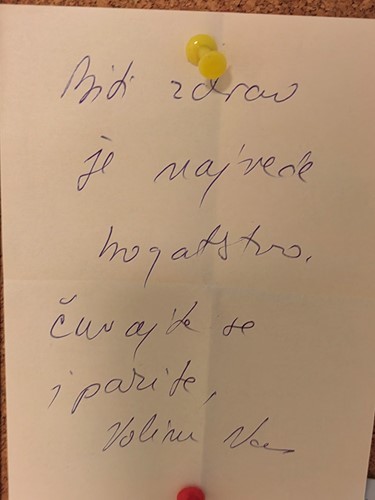 Biti zdrav
je najveće
bogatstvo.
Čuvajte se
i pazite,
Volim Vas